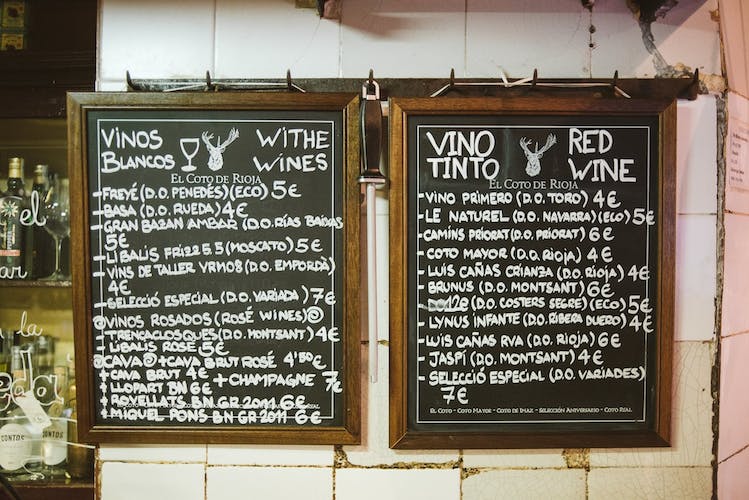 VINOS BLANCOS
WITHE WINES
EL COTO DE RIOJA
-FREYÉ (D.O. PENEDÉS) (ECO) 5€
-BASA (D.O. RUEDA) 4€
-GRAN BAZAN AMBAR (D.O. RÍAS BAIXAS
5€
-LIBALIS FRIZZ 5.5 (MOSCATO) 5€
-VINS DE TALLER VRM08 (D.O. EMPORDÀ)
4€
-SELECCIÓ ESPECIAL (D.O. VARIADA) 7€
VINOS ROSADOS (ROSÉ WINES)
-TRENCACLOSQUES (D.O. MONTSANT) 4€
-LIBALIS ROSÉ 5€
CAVA + CAVA BRUT ROSÉ 4'50€
+CAVA BRUT 4€
+CHAMPAGNE 7€
+LLOPART BN 6€
+ROVELLATS BN GR 2011 6€
+MIQUEL PONS BN GR 2011 6€
VINO TINTO
RED WINE
EL COTO DE RIOJA
-VINO PRIMERO (D.O. TORO) 4€
-LE NATUREL (D.O. NAVARRA) (ECO) 5€
-CAMINS PRIORAT (D.O. PRIORAT) 6€
-COTO MAYOR (D.O. RIOJA) 4€
-LUIS CAÑAS CRIANZA (D.O. RIOJA) 4€
-BRUNUS (D.O. MONTSANT) 6€
(D.O. COSTERS SEGRE) (ECO) 5€
-LYNUS INFANTE (D.O. RIBERA DUERO) 4€
-LUIS CAÑAS RVA (D.O. RIOJA) 6€
-JASPI (D.O. MONTSANT) 4€
-SELECCIÓ ESPECIAL (D.O. VARIADES)
7€
EL COTO - COTO MAYOR - COTO DE IMAZ - SELECCIÓN ANIVERSARIO - COTO REAL
el
la